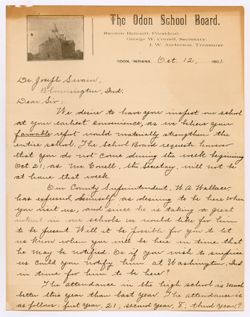 The Odon School Board.
Burdon Howard, President.
George W. Correll, Secretary.
J. W. Anderson, Treasurer
Odon, Indiana, Oct 12, 1903
Dr. Joseph Swain,
Bloomington, Ind.
Dear Sir:
We desire to have you inspect our school
at your earliest convenience, as we believe your
favorable report would materially strengthen the
entire school. The School Board requests however
that you do not come during the week beginning
Oct 21, as Mr. Correll, the Secretary, will not be
at home that week.
Our County Superintendent, W. A. Wallace,
has expressed himself as desiring to be here when
you visit us, and since he is taking a great
interest in our schools we would like for him
to be present. Will it be possible for you to let
us know when you will be here in time that
he may be notified. Or if you wish to surprise
us could you notify him at Washington, Ind
in time for him to be here?
The attendance in the high school is much
better this year than last year. The attendance is
as follows: first year 21, second year 8, third year